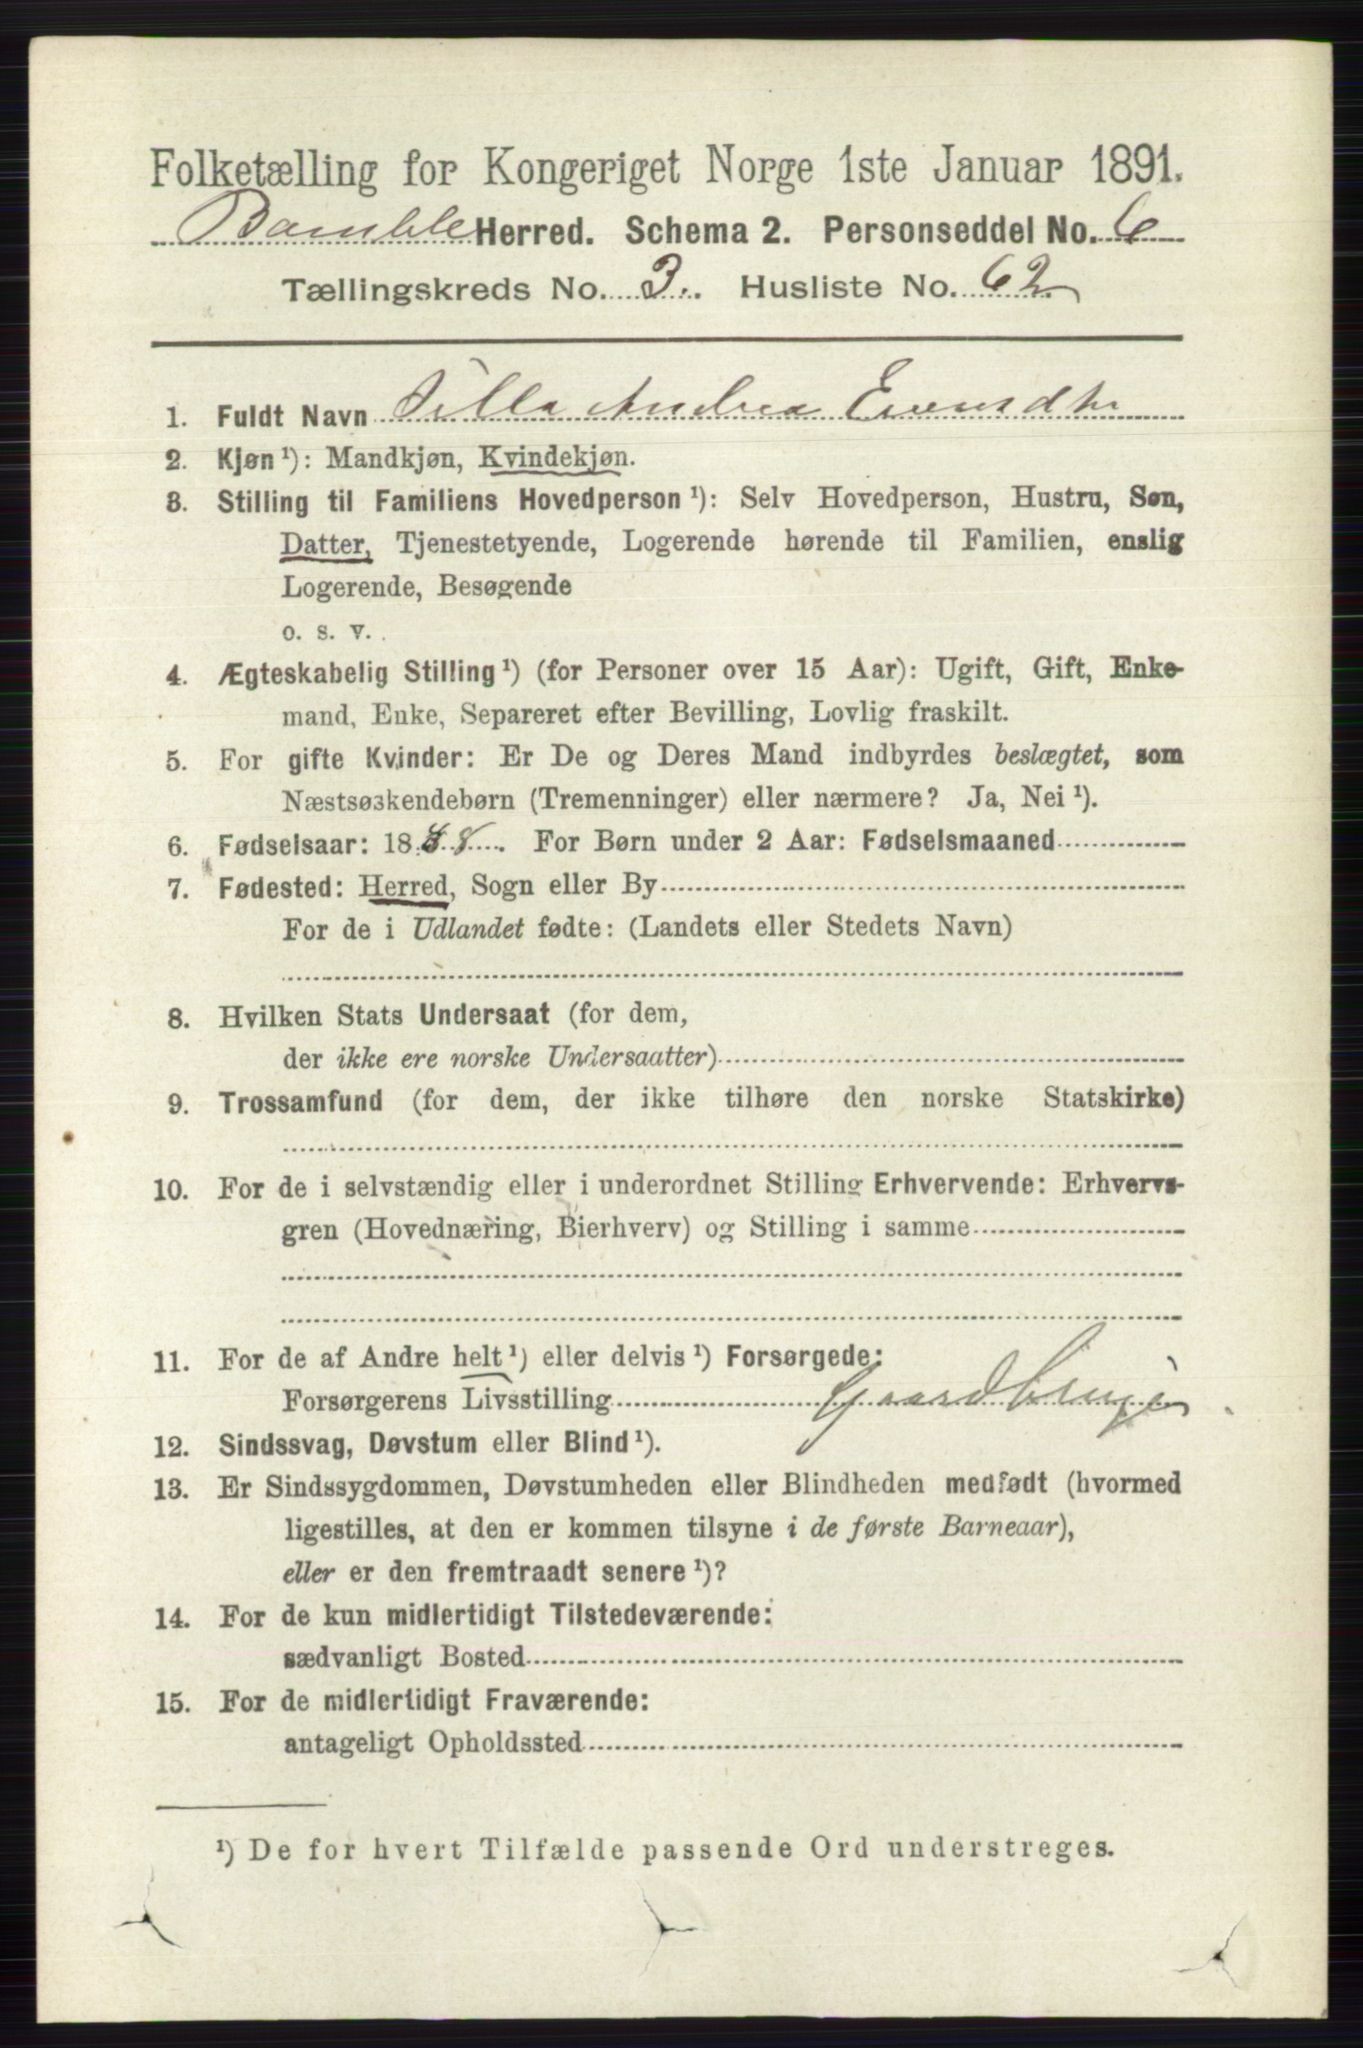 Folketælling for Kongeriget Norge 1ste Januar 1891.
Bamble Herred. Schema 2. Personseddel No. 6
Tællingskreds No. 3. Husliste No. 62
1. Fuldt Navn Andrea
2. Kjøn ¹): Mandkjøn, Kvindekjøn.
3. Stilling til Familiens Hovedperson ¹): Selv Hovedperson, Hustru, Søn,
Datter, Tjenestetyende, Logerende hørende til Familien, enslig
Logerende, Besøgende
o. s. v.
4. Ægteskabelig Stilling ¹) (for Personer over 15 Aar): Ugift, Gift, Enke-
mand, Enke, Separeret efter Bevilling, Lovlig fraskilt.
5. For gifte Kvinder: Er De og Deres Mand indbyrdes beslægtet, som
Næstsøskendebørn (Tremenninger) eller nærmere? Ja, Nei ¹).
6. Fødselsaar: 1888. For Børn under 2 Aar: Fødselsmaaned
7. Fødested: Herred, Sogn eller By
For de i Udlandet fødte: (Landets eller Stedets Navn)
8. Hvilken Stats Undersaat (for dem,
der ikke ere norske Undersaatter)
9. Trossamfund (for dem, der ikke tilhøre den norske Statskirke)
10. For de i selvstændig eller i underordnet Stilling Erhvervende: Erhvervs-
gren (Hovednæring, Bierhverv) og Stilling i samme
11. For de af Andre helt ¹) eller delvis ¹) Forsørgede:
Forsørgerens Livsstilling
12. Sindssvag, Døvstum eller Blind ¹).
13. Er Sindssygdommen, Døvstumheden eller Blindheden medfødt (hvormed
ligestilles, at den er kommen tilsyne i de første Barneaar),
eller er den fremtraadt senere ¹)?
14. For de kun midlertidigt Tilstedeværende:
sædvanligt Bosted
15. For de midlertidigt Fraværende:
antageligt Opholdssted
¹) De for hvert Tilfælde passende Ord understreges.